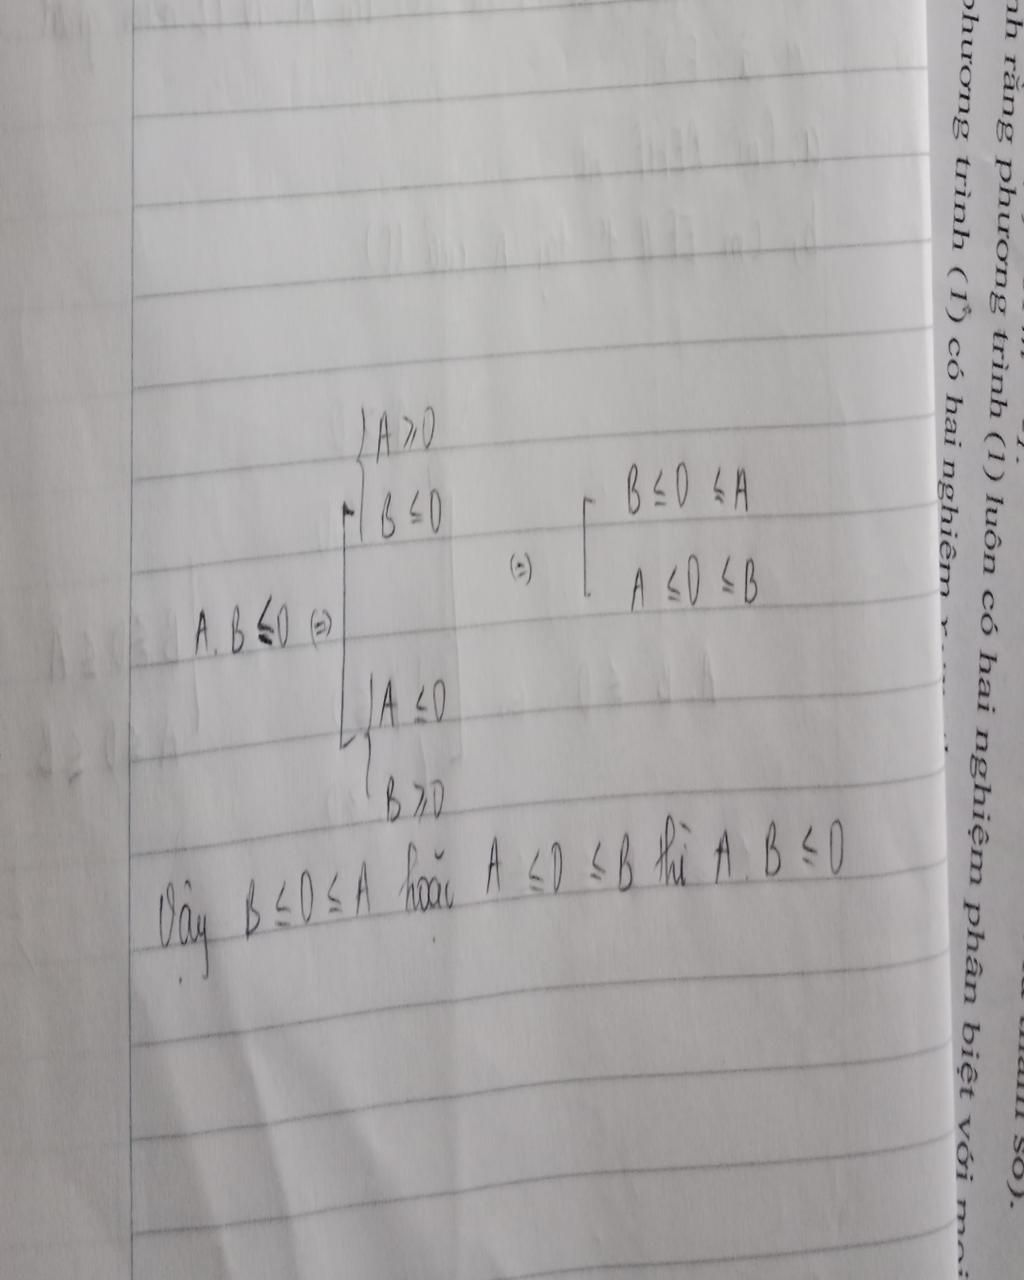 { A ≥ 0
B ≤ 0
A. B ≤ 0 (=) [
{ A ≤ 0
B ≥ 0
(=) [ B ≤ 0 ≤ A
A ≤ 0 ≤ B
Vậy B ≤ 0 ≤ A hoặc A ≤ 0 ≤ B thì A. B ≤ 0
rằng phương trình (1) luôn có hai nghiệm phân biệt với mọi
phương trình (1) có hai nghiệm
số).